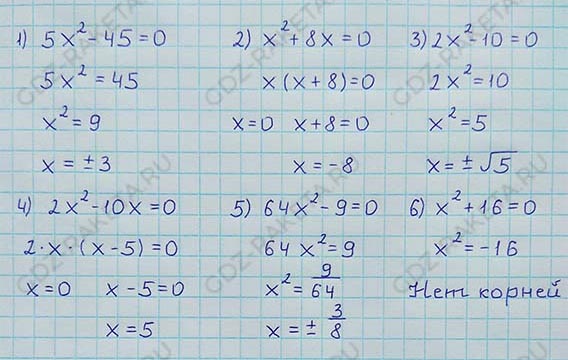 1) 5x² - 45 = 0
5x² = 45
x² = 9
x = ± 3
2) x² + 8x = 0
x (x + 8) = 0
x = 0 x + 8 = 0
x = -8
3) 2x² - 10 = 0
2x² = 10
x² = 5
x = ± √5
4) 2x² - 10x = 0
2 · x · (x - 5) = 0
x = 0 x - 5 = 0
x = 5
5) 64x² - 9 = 0
64x² = 9
x² = 9/64
x = ± 3/8
6) x² + 16 = 0
x² = -16
Нет корней
GDZ-RAKETA.RU